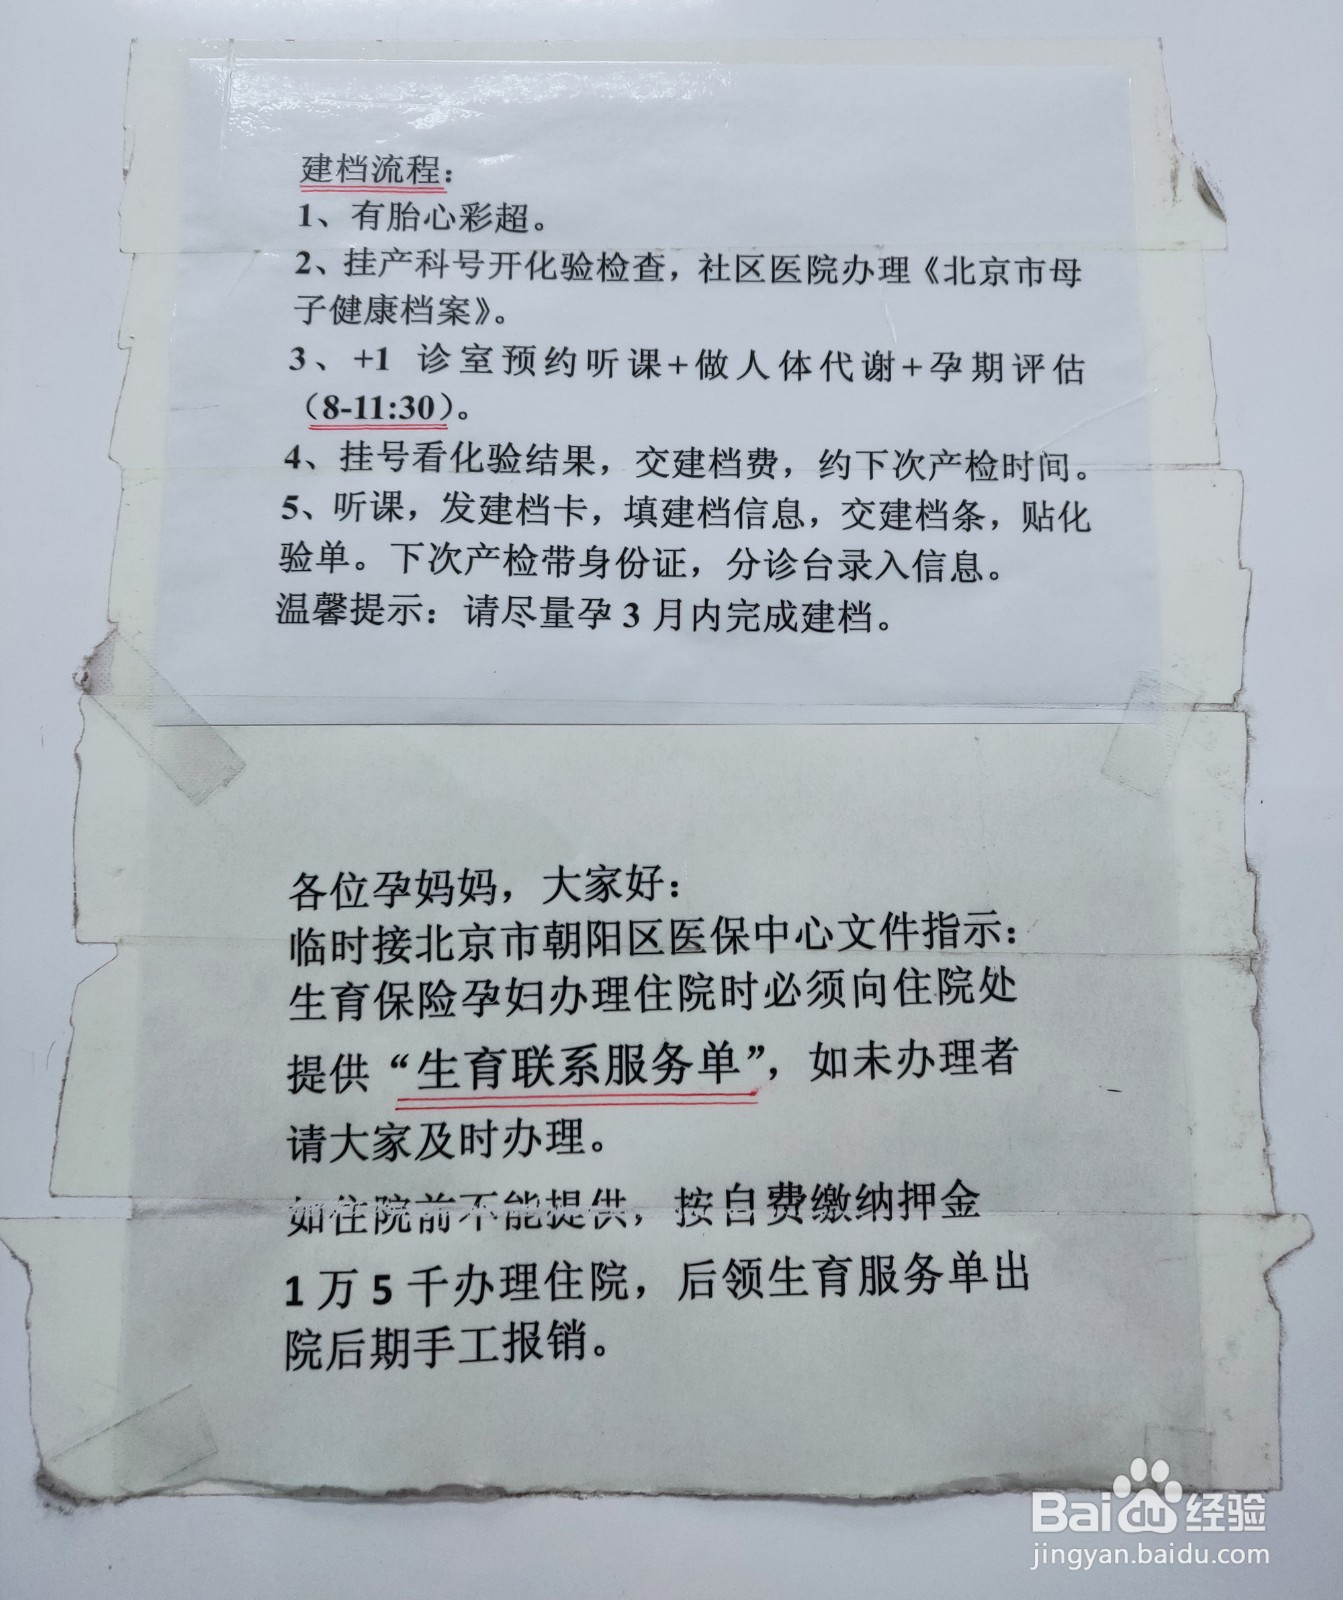 建档流程：
1、有胎心彩超。
2、挂产科号开化验检查，社区医院办理《北京市母
子健康档案》。
3、+1 诊室预约听课+做人体代谢+孕期评估
（8-11:30）。
4、挂号看化验结果，交建档费，约下次产检时间。
5、听课，发建档卡，填建档信息，交建档条，贴化
验单。下次产检带身份证，分诊台录入信息。
温馨提示：请尽量孕 3 月内完成建档。
各位孕妈妈，大家好：
临时接北京市朝阳区医保中心文件指示：
生育保险孕妇办理住院时必须向住院处
提供“生育联系服务单”，如未办理者
请大家及时办理。
如住院前不能提供，按自费缴纳押金
1 万 5 千办理住院，后领生育服务单出
院后期手工报销。
Baidu 经验
jingyan.baidu.com